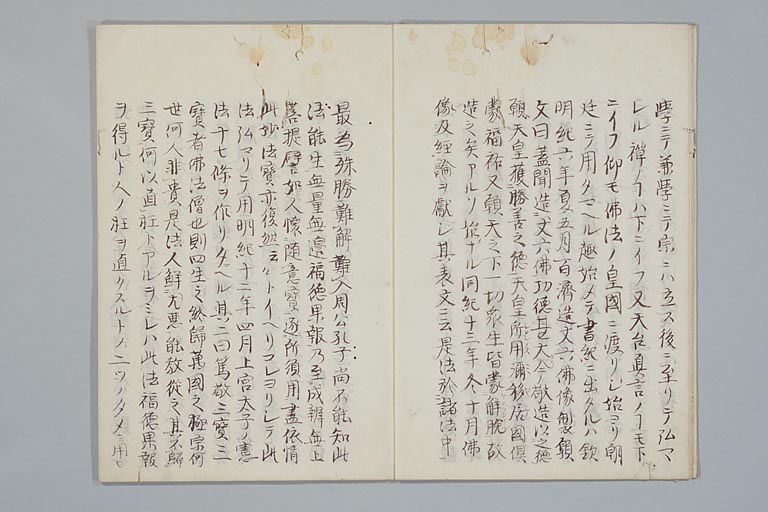 學ニテ兼學ニテ宗ニハ立ス後ニ至リテ弘マ
レル禪ノヿハ下ニイフ又天台眞言ノヿモ下
ニイフ仰モ佛法ノ皇國ニ渡リシ始ヨリ朝
廷ニテ用タマヘル趣始メテ書紀ニ出タルハ欽
明紀六年夏五月百濟造丈六佛像製願
文曰蓋聞造丈六佛功德甚大今敬造以之德
願天皇獲勝善之德天皇所用彌移居國俱
蒙福祐又願天之下一切衆生皆蒙解脫故
造之矣アルソ始ナル同紀十三年冬十月佛
像及經論ヲ獻シ其表文ニ云是法於諸法中
最爲殊勝難解難入周公孔子尚不能知此
法能生無量無邊福德果報乃至成辨無上
菩提譬如人懷隨意寶逐所須用盡依情
此妙法寶亦復然云々トイヘリコレヨリシテ此
法弘マリテ用明紀十二年四月上宮太子ノ憲
法十七條ヲ作リタマヘル其二曰篤敬三寶三
寶者佛法僧也則四生之終歸萬國之極宗何
世何人非貴是法人鮮尤惡能敎從之其不歸
三寶何以直枉トアルヲミレハ此法福德果報
ヲ得ルト人ノ枉ヲ直クスルトノ二ツノタメニ用モ